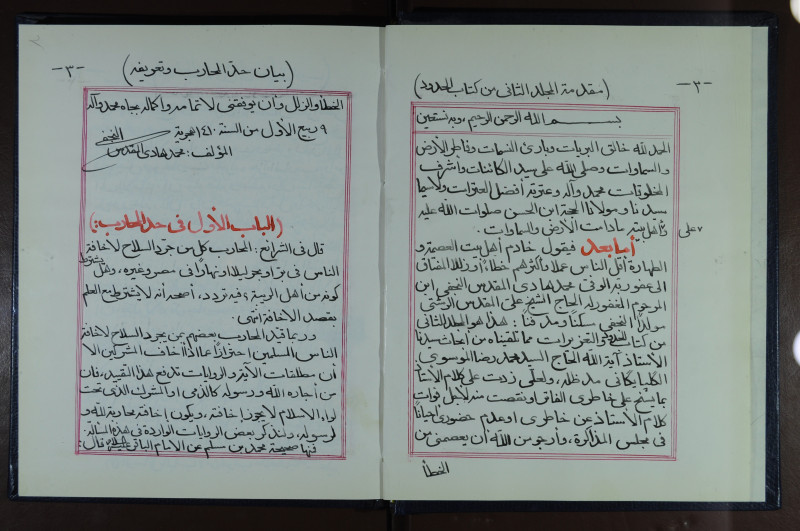 -٢-
(مقدمة المجلد الثاني من كتاب الحدود)
بسم الله الرحمن الرحيم، وبه نستعين
الحمد لله خالق البريات وبارئ النسمات وفاطر الأرض
والسماوات وصلى الله على سيد الكائنات وأشرف
المخلوقات محمد وآله وعترته أفضل العترات ولا سيما
سيدنا ومولانا الحجة ابن الحسن صلوات الله عليه
وعلى أهل بيته ما دامت الأرض والسماوات.
أما بعد فيقول خادم أهل بيت العصمة و
الطهارة أقل الناس عملا وأكثرهم خطاءً وزللا المفتاق
الى عفو ربه الوفي محمد هادي المقدس النجفي ابن
المرحوم المغفور له الحاج الشيخ علي المقدس الرشتي
مولداً النجفي سكناً ومدفناً: هذا هو المجلد الثاني
من كتاب الحدود والتعزيرات مما تلقيناه من أبحاث سيدنا
الأستاذ آية الله الحاج السيد محمد رضا الموسوي
الگلپايگاني مد ظله، ولعلي زدت على كلام الأستاذ
بما يسنح على خاطري الفاتر أو نقصت منه لأجل فوات
كلام الأستاذ عن خاطري او عدم حضوري أحيانا
في مجلس المذاكرة، وأرجو من الله أن يعصمني من
الخطأ
-٣-
(بيان حد المحارب وتعريفه)
الخطأ والزلل وأن يوفقني لإتمامه وإكماله بجاه محمد وآله
٩ ربيع الأول من السنة ١٤١٠ الهجرية
المؤلف: محمد هادي المقدس النجفي
(الباب الأول في حد المحارب:)
قال في الشرائع: المحارب كل من جرد السلاح لإخافة
الناس في بر او بحر ليلا او نهارا في مصر وغيره، وهل يشترط
كونه من أهل الريبة؟ فيه تردد، أصحه أنه لا يشترط مع العلم
بقصد الاخافة انتهى.
وربما قيد المحارب بعضهم بمن يجرد السلاح لإخافة
الناس المسلمين احترازاً عما اذا أخاف المشركين الا
أن مطلقات الآية والروايات تدفع هذا التقييد، فان
من أجاره الله ورسوله كالذمي او المشرك الذي تحت
لواء الاسلام لا يجوز إخافته، ويكون إخافته محاربة لله و
لرسوله، ولنذكر بعض الروايات الواردة في هذه المسألة.
فمنها صحيحة محمد بن مسلم عن الامام الباقر عليه السلام قال: